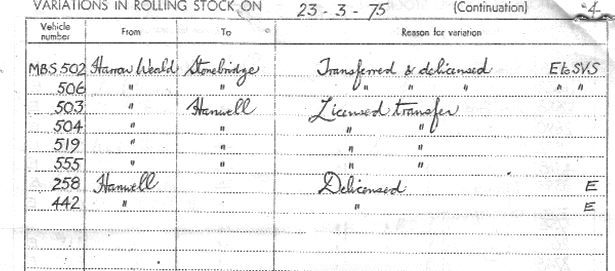 VARIATIONS IN ROLLING STOCK ON 23 - 3 - 75 (Continuation) 4
Vehicle number From To Reason for variation
MBS 502 Harrow Weald Stonebridge Transferred & delicensed E to SVS
506 " " " " " " "
503 " Hanwell Licensed transfer
504 " " " "
519 " " " "
555 " " " "
258 Hanwell Delicensed E
442 " " E